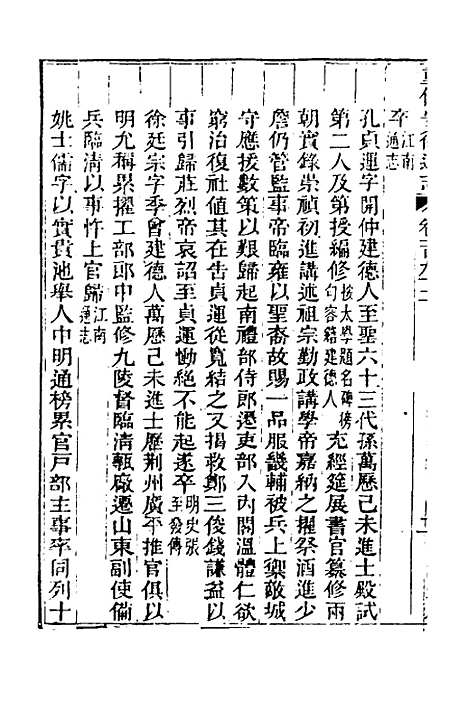 卒江南通志
孔貞運字開仲建德人至聖六十三代孫萬歷己未進士殿試
第二人及第授編修按太學題名碑榜句容籍建德人充經筵展書官纂修兩
朝實錄崇禎初進講述祖宗勤政講學帝嘉納之擢祭酒進少
詹仍管監事帝臨雍以聖裔故賜一品服畿輔被兵上禦敵城
守應援數策以艱歸起南禮部侍郎遷吏部入內閣溫體仁欲
窮治復社值其在告貞運從寬結之又揭救鄭三俊錢謙益以
事引歸莊烈帝哀詔至貞運慟絕不能起遂卒明史張至發傳
徐廷宗字季曾建德人萬歷己未進士歷荆州廣平推官俱以
明允稱累擢工部郎中監修九陵督臨清甎廠遷山東副使備
兵臨清以事忤上官歸江南通志
姚士儒字以實貴池舉人中明通榜累官戶部主事卒同列十